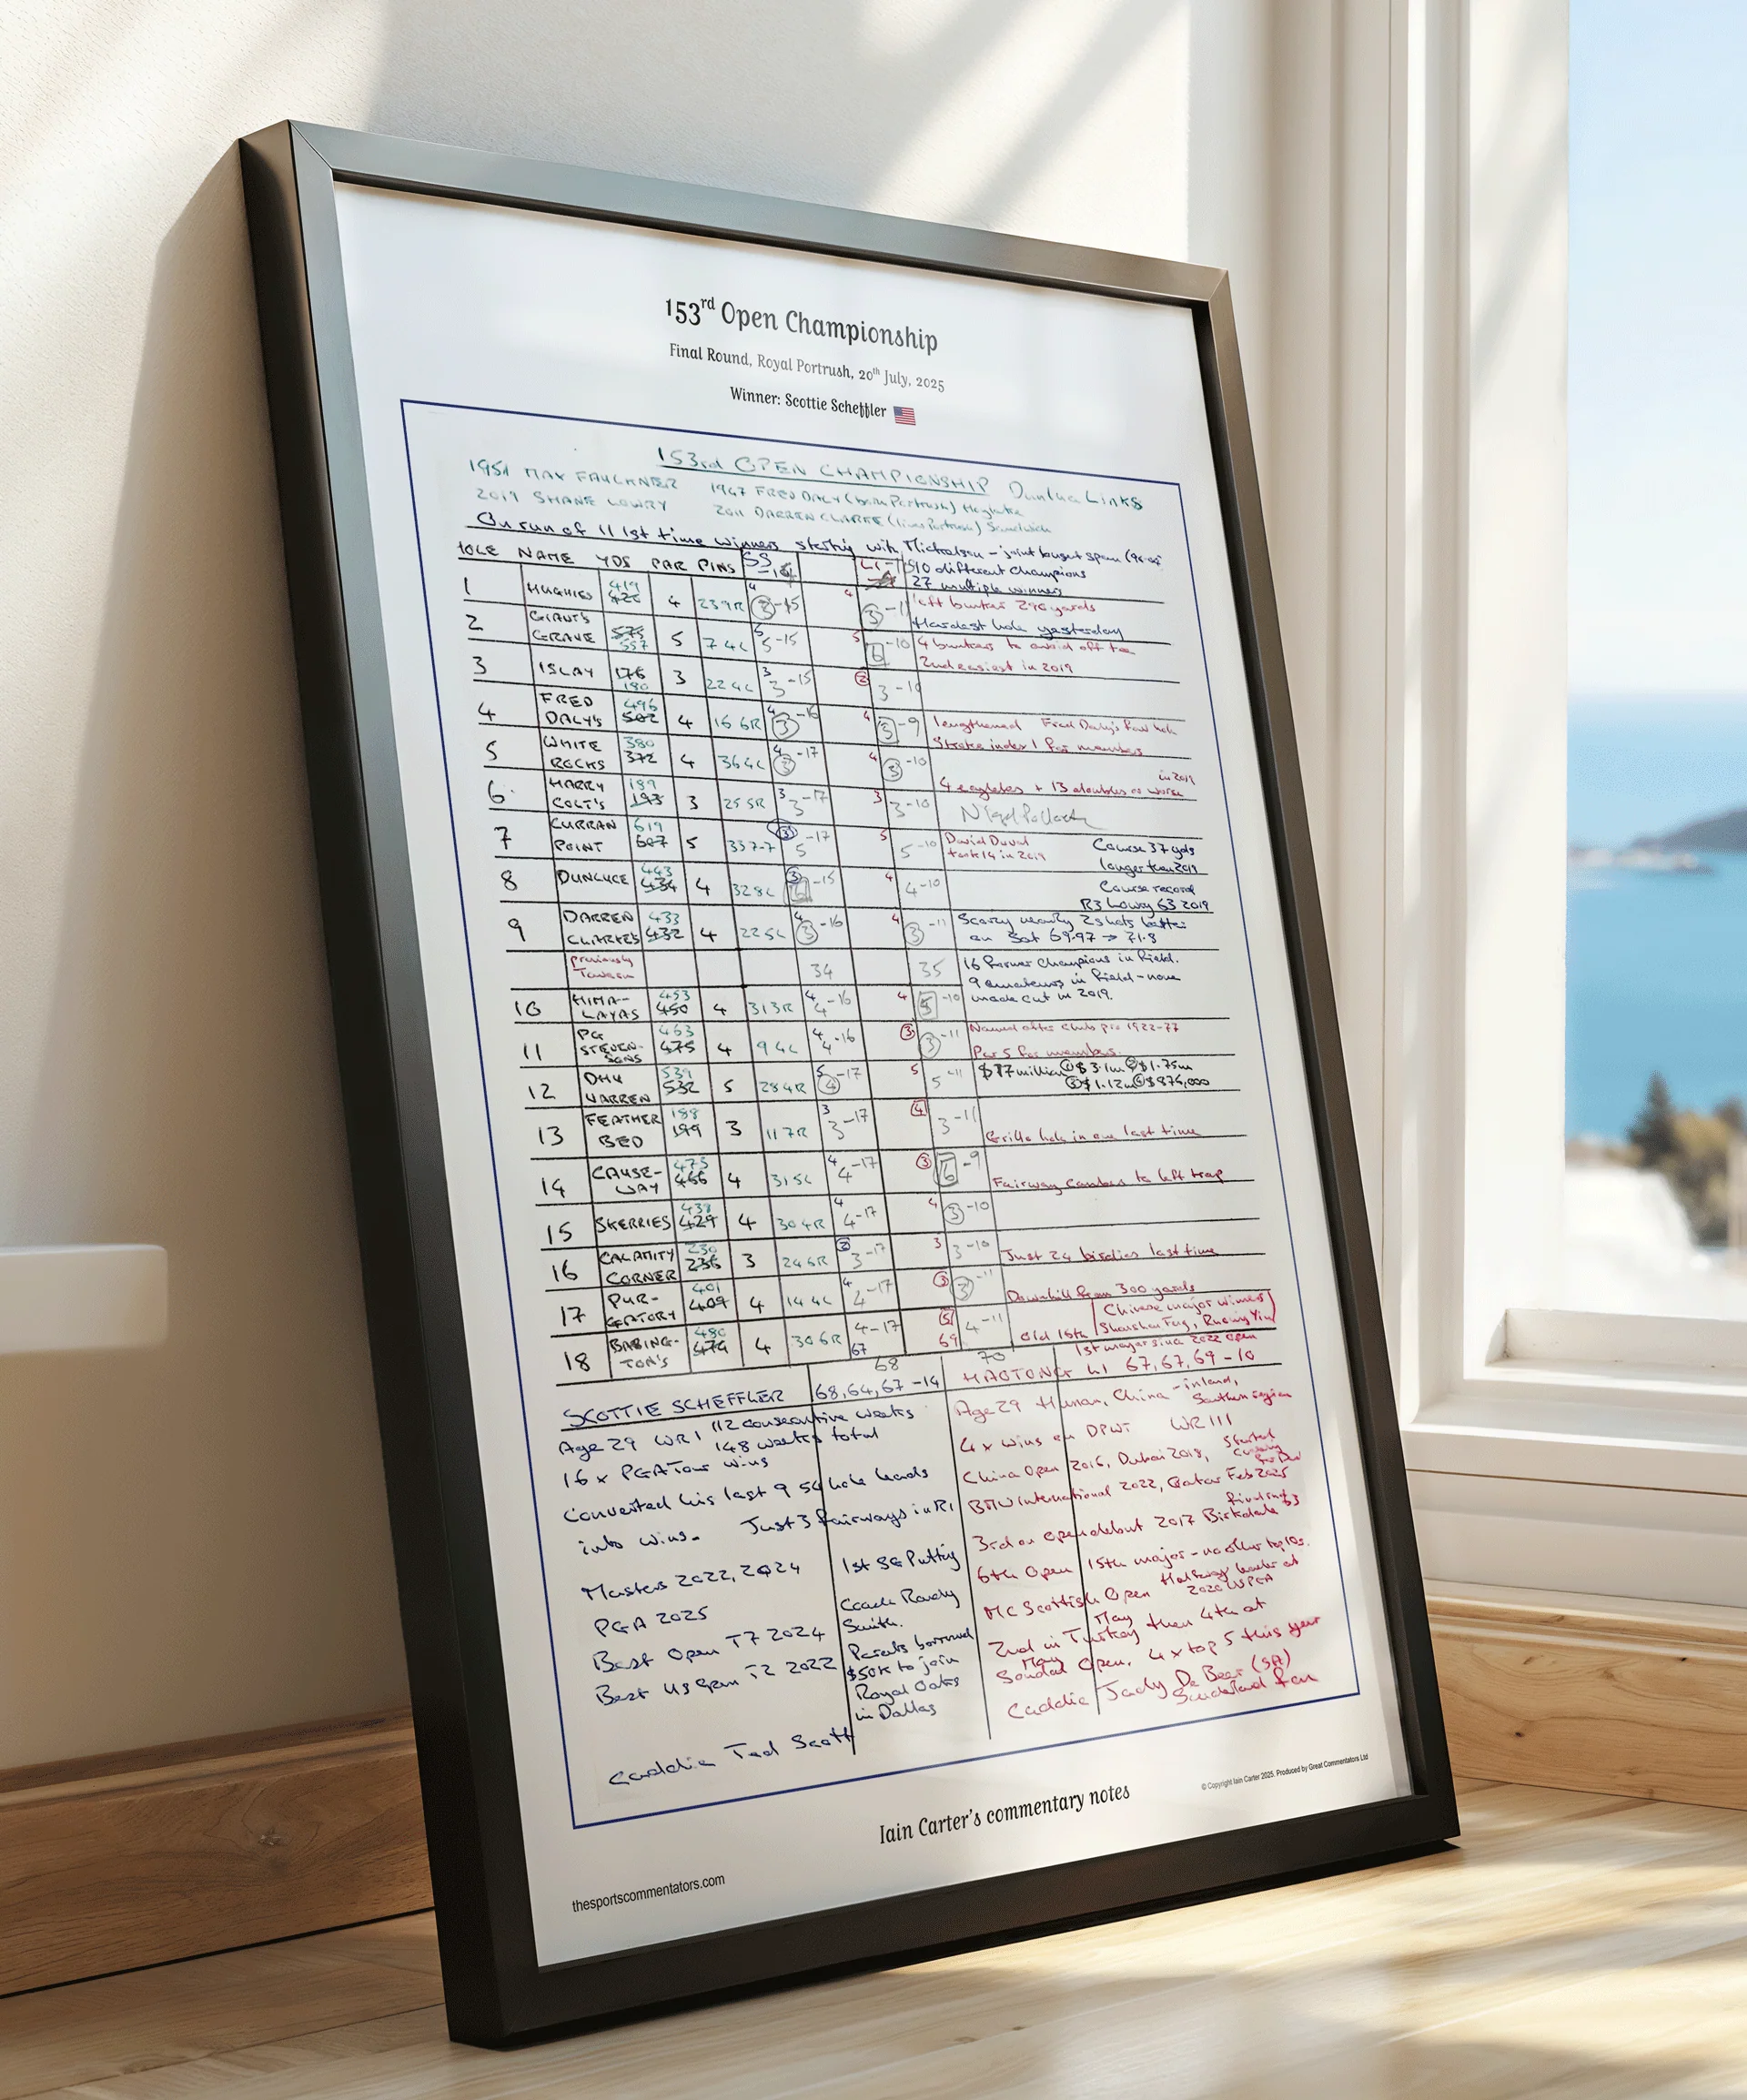 153rd Open Championship
Final Round, Royal Portrush, 20th July, 2025
Winner: Scottie Scheffler
153rd OPEN CHAMPIONSHIP Dunluce Links
1951 MAX FAULKNER 1947 FRED DALY (born Portrush) Hoylake
2019 SHANE LOWRY 2011 DARREN CLARKE (lives Portrush) Sandwich
On run of 11 1st time winners starting with Mickelson - joint longest span
HOLE NAME YDS PAR PINS SS LI
510 different champions
27 multiple winners
1 HUGHIES 419 426 4 239R 4 3 -15 4 3 -11 left bunker 296 yards
Hardest hole yesterday
2 GIANT'S GRAVE 575 557 5 7 4L 5 5 -15 5 6 -10 4 bunkers to avoid off tee
2nd easiest in 2019
3 ISLAY 176 180 3 22 4L 3 3 -15 2 3 -10
4 FRED DALY'S 496 502 4 16 6R 4 3 -16 4 5 -9 lengthened Fred Daly's hole
Stroke index 1 for members
5 WHITE ROCKS 380 372 4 36 4L 4 3 -17 4 3 -10
in 2019
4 eagles + 13 doubles or worse
6 HARRY COLT'S 189 193 3 25 5R 3 3 -17 3 3 -10
7 CURRAN POINT 619 607 5 337-7 3 5 -17 5 5 -10 David Duval took 14 in 2019
Course 37 yds longer than 2019
8 DUNLUCE 443 434 4 328L 3 6 -15 4 4 -10
Course record
R3 Lowry 63 2019
9 DARREN CLARKE'S 433 432 4 22 5L 4 3 -16 4 3 -11 Scoring nearly 2 shots better
on Sat 69.97 → 71.8
previously Tavern 34 35 16 former champions in field.
9 amateurs in field - none
made cut in 2019.
10 HIMALAYAS 453 450 4 313R 4 4 -16 4 5 -10
11 PG STEVENSONS 463 475 4 9 4L 4 4 -16 3 3 -11 Named after club pro 1922-77
Par 5 for members.
12 DHU VARREN 539 532 5 28 4R 5 4 -17 5 5 -11 $17 million ① $3.1m ② $1.75m
③ $1.12m ④ $876,000
13 FEATHER BED 188 199 3 11 7R 3 3 -17 4 3 -11 Grillo hole in one last time
14 CAUSEWAY 473 466 4 31 5L 4 4 -17 3 6 -9 Fairway cambers to left trap
15 SKERRIES 438 429 4 30 4R 4 4 -17 4 3 -10
16 CALAMITY CORNER 230 236 3 24 6R 2 3 -17 3 3 -10 Just 24 birdies last time
17 PURGATORY 401 409 4 14 4L 4 4 -17 3 3 -11 Downhill from 300 yards
18 BABINGTON'S 480 474 4 30 6R 4 -17 67 5 69 4 -11 Old 15th
Chinese major winners
Shanshan Feng, Ruoning Yin
1st major since 2022 Open
68 70
SCOTTIE SCHEFFLER 68, 64, 67 -14
HAOTONG LI 67, 67, 69 -10
Age 29 WR1 112 consecutive weeks
148 weeks total
16 x PGA Tour wins
Converted his last 9 54 hole leads
into wins. Just 3 fairways in R1
Masters 2022, 2024
PGA 2025
Best Open T7 2024
Best US Open T2 2022
Caddie Ted Scott
1st SG Putting
Coach Randy
Smith.
Parents borrowed
$50K to join
Royal Oaks
in Dallas
Age 29 Hunan, China - inland,
Southern region
4 x wins on DPWT WR 111
China Open 2016, Dubai 2018,
BMW International 2022, Qatar Feb 2025
3rd on Open debut 2017 Birkdale
final rnd 63
6th Open 15th major - no other top 10s.
Halfway leader at
2020 USPGA
MC Scottish Open
May
2nd in Turkey then 4th at
May
Soudal Open. 4 x top 5 this year
Caddie Jady De Beer (SA)
Sunderland fan
Iain Carter's commentary notes
© Copyright Iain Carter 2025. Produced by Great Commentators Ltd
thesportscommentators.com